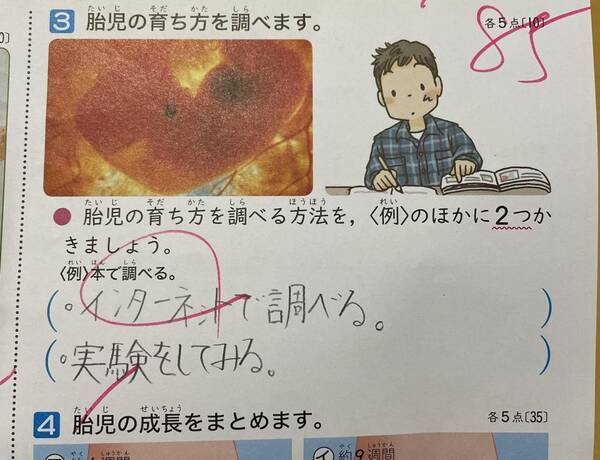 3 胎児の育ち方を調べます。 各5点〔10〕
85
● 胎児の育ち方を調べる方法を,〈例〉のほかに2つか
きましょう。
〈例〉本で調べる。
(。インターネットで調べる。)
(。実験をしてみる。)
4 胎児の成長をまとめます。 各5点〔35〕
イ 約9週間